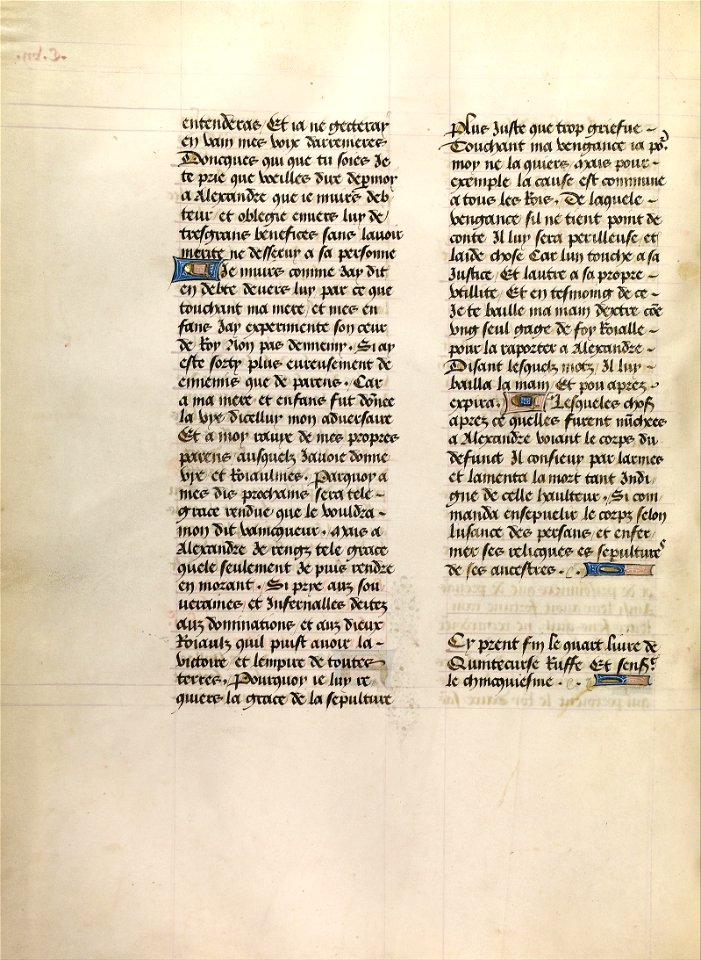 entenderas Et ia ne gecteray
en vain mes voix darrenieres
Doncques qui que tu soies Je
te prie que vueilles dire de par moy
a Alexandre que ie muirs deb
teur et oblegie enuers luy de
tresgrans benefices sans lauoir
merite ne desseruy a sa personne
Je muirs comme Jay dit
en debte deuers luy par ce que
touchant ma mere et mes en
fans Jay experimente son ceur
de Roy Non pas dennemy. Si ay
este sorty plus eureusement de
ennemis que de parens. Car
a ma mere et enfans fut dõnee
la vye dicelluy mon aduersaire
Et a moy rauye de mes propres
parens ausquelz Jauoie donne
vye et Roiaulmes. Parquoy a
mes dis prochains sera tele
grace rendue que le vouldra
mon dit vaincqueur. Mais a
Alexandre Je rengz tele grace
quele seulement Je puis rendre
en morant. Si prye aux sou
ueraines et Infernalles deitez
aux dominations et aux dieux
Roiaulx quil puist auoir la
victoire et lempire de toutes
terres. Pourquoy ie luy re
quiers la grace de la sepulture
Plus Juste que trop griefue
Touchant ma vengance ia põ
moy ne la quiers mais pour
exemple la cause est commune
a tous les Rois. De laquele
vengance sil ne tient point de
conte Il luy sera perilleuse et
laide chose Car lun touche a sa
Justice Et lautre a sa propre
vtillite Et en tesmoing de ce
Je te baille ma main dextre cõe
vng seul gage de foy Roialle
pour la raporter a Alexandre
Disant lesquelz motz Il luy
bailla la main Et pou aprez
expira. Lesqueles chos
aprez ce quelles furent nũchees
a Alexandre voiant le corps du
defunct Il consieuy par larmes
et lamenta la mort tant Indi
gne de celle haulteur. Si com
manda ensepuelir le corpz selon
lusance des persans et enfer
mer ses relicques es sepulture
de ses ancestres.
Cy prent fin le quart liure de
Quintecurse Ruffe Et sensĩ
le chincquiesme.